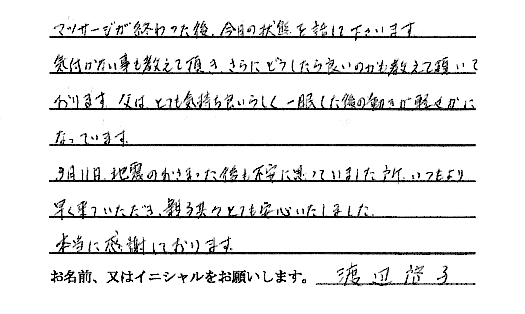 マッサージが終わった後、今日の状態を話して下さいます。
気付かない事も教えて頂き、さらにどうしたら良いのかも教えて頂いて
おります。父は、とても気持ち良いらしく、一眠した後の動きが軽やかに
なっています。
3月11日、地震のおさまった後も不安に思っていました所、いつもより
早く来ていただき、親子共々とても安心いたしました。
本当に感謝しております。
お名前、又はイニシャルをお願いします。 渡辺 子